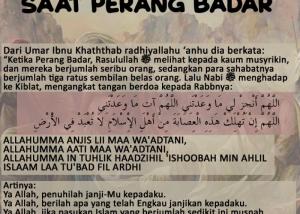 SAAT PERANG BADAR
Dari Umar Ibnu Khaththab radhiyallahu 'anhu dia berkata:
"Ketika Perang Badar, Rasulullah ﷺ melihat kepada kaum musyrikin,
dan mereka berjumlah seribu orang, sedangkan para sahabatnya
berjumlah tiga ratus sembilan belas orang. Lalu Nabi ﷺ menghadap
ke Kiblat, mengangkat tangan berdoa kepada Rabbnya:
اللَّهُمَّ أَنْجِزْ لِي مَا وَعَدْتَنِي اللَّهُمَّ آتِ مَا وَعَدْتَنِي
اللَّهُمَّ إِنْ تُهْلِكْ هَذِهِ الْعِصَابَةَ مِنْ أَهْلِ الْإِسْلَامِ لَا تُعْبَدْ فِي الْأَرْضِ
ALLAHUMMA ANJIS LII MAA WA'ADTANI,
ALLAHUMMA AATI MAA WA'ADTANI,
ALLAHUMMA IN TUHLIK HAADZIHIL 'ISHOOBAH MIN AHLIL
ISLAAM LAA TU'BAD FIL ARDHI
Artinya:
Ya Allah, penuhilah janji-Mu kepadaku.
Ya Allah, berilah apa yang telah Engkau janjikan kepadaku.
Ya Allah, jika pasukan Islam yang berjumlah sedikit ini musnah